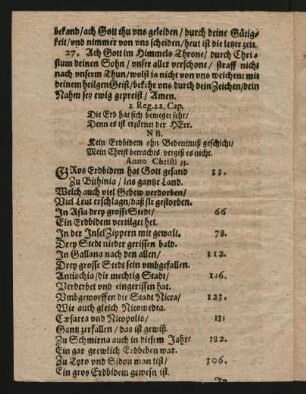 bekand/ach Gott thu vns geleiden/durch deine Gütig-
keit/vnd nimmer von vns scheiden/heut ist die letzte zeit.
27. Ach Gott im Himmels Throne/durch Chri-
stum deinen Sohn/vnser aller verschone/straff nicht
nach vnserm Thun/wolst ja nicht von vns weichen: mit
deinem heilgen Geist/bekehr vns durch dein Zeichen/dein
Nahm sey ewig gepreist/Amen.
2. Reg. 22. Cap.
Die Erd hat sich beweget sehr/
Denn es ist erzörnet der HErr.
N B.
Kein Erdbidem ohn Bedeutnuß geschicht/
Mein Christ betrachts vergeß es nicht.
Anno Christi 33.
GRos Erdbidem hat Gott gesand 33.
Zu Bithinia/ins gantze Land.
Welch auch viel Gebew verdorben/
Viel Leut erschlagen/daß sie gestorben.
In Asia drey grosse Stedt/ 66
Ein Erdbidem vertilget het.
In der Insel Zippern mit gewalt. 78.
Drey Stedt nieder gerissen bald.
In Gallana nach den allen/ 112.
Drey grosse Stedt sein vmbgefallen.
Antiochia/die mechtig Stadt/ 116.
Verderbet vnd eingerissen hat.
Vmbgeworffen die Stadt Nicea/ 123.
Wie auch gleich Nicomedia.
Cæsarea vnd Nicopolis/ 131
Gantz zerfallen/das ist gewiß.
Zu Schmirna auch in diesem Jahr/ 182.
Ein gar grewlich Erdbeben war.
Zu Tyro vnd Sidon man list/ 306.
Ein gros Erdbidem gewesn ist.
In